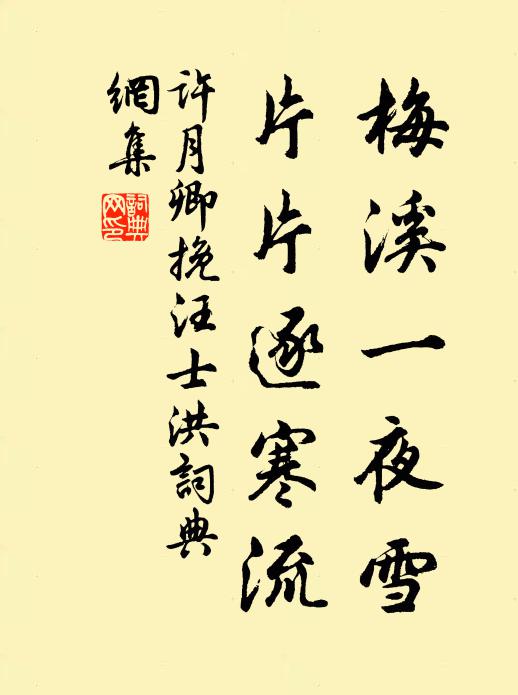 梅溪一夜雪
片片逐寒流
許月卿挽汪士洪詞典
網集
詞典網印